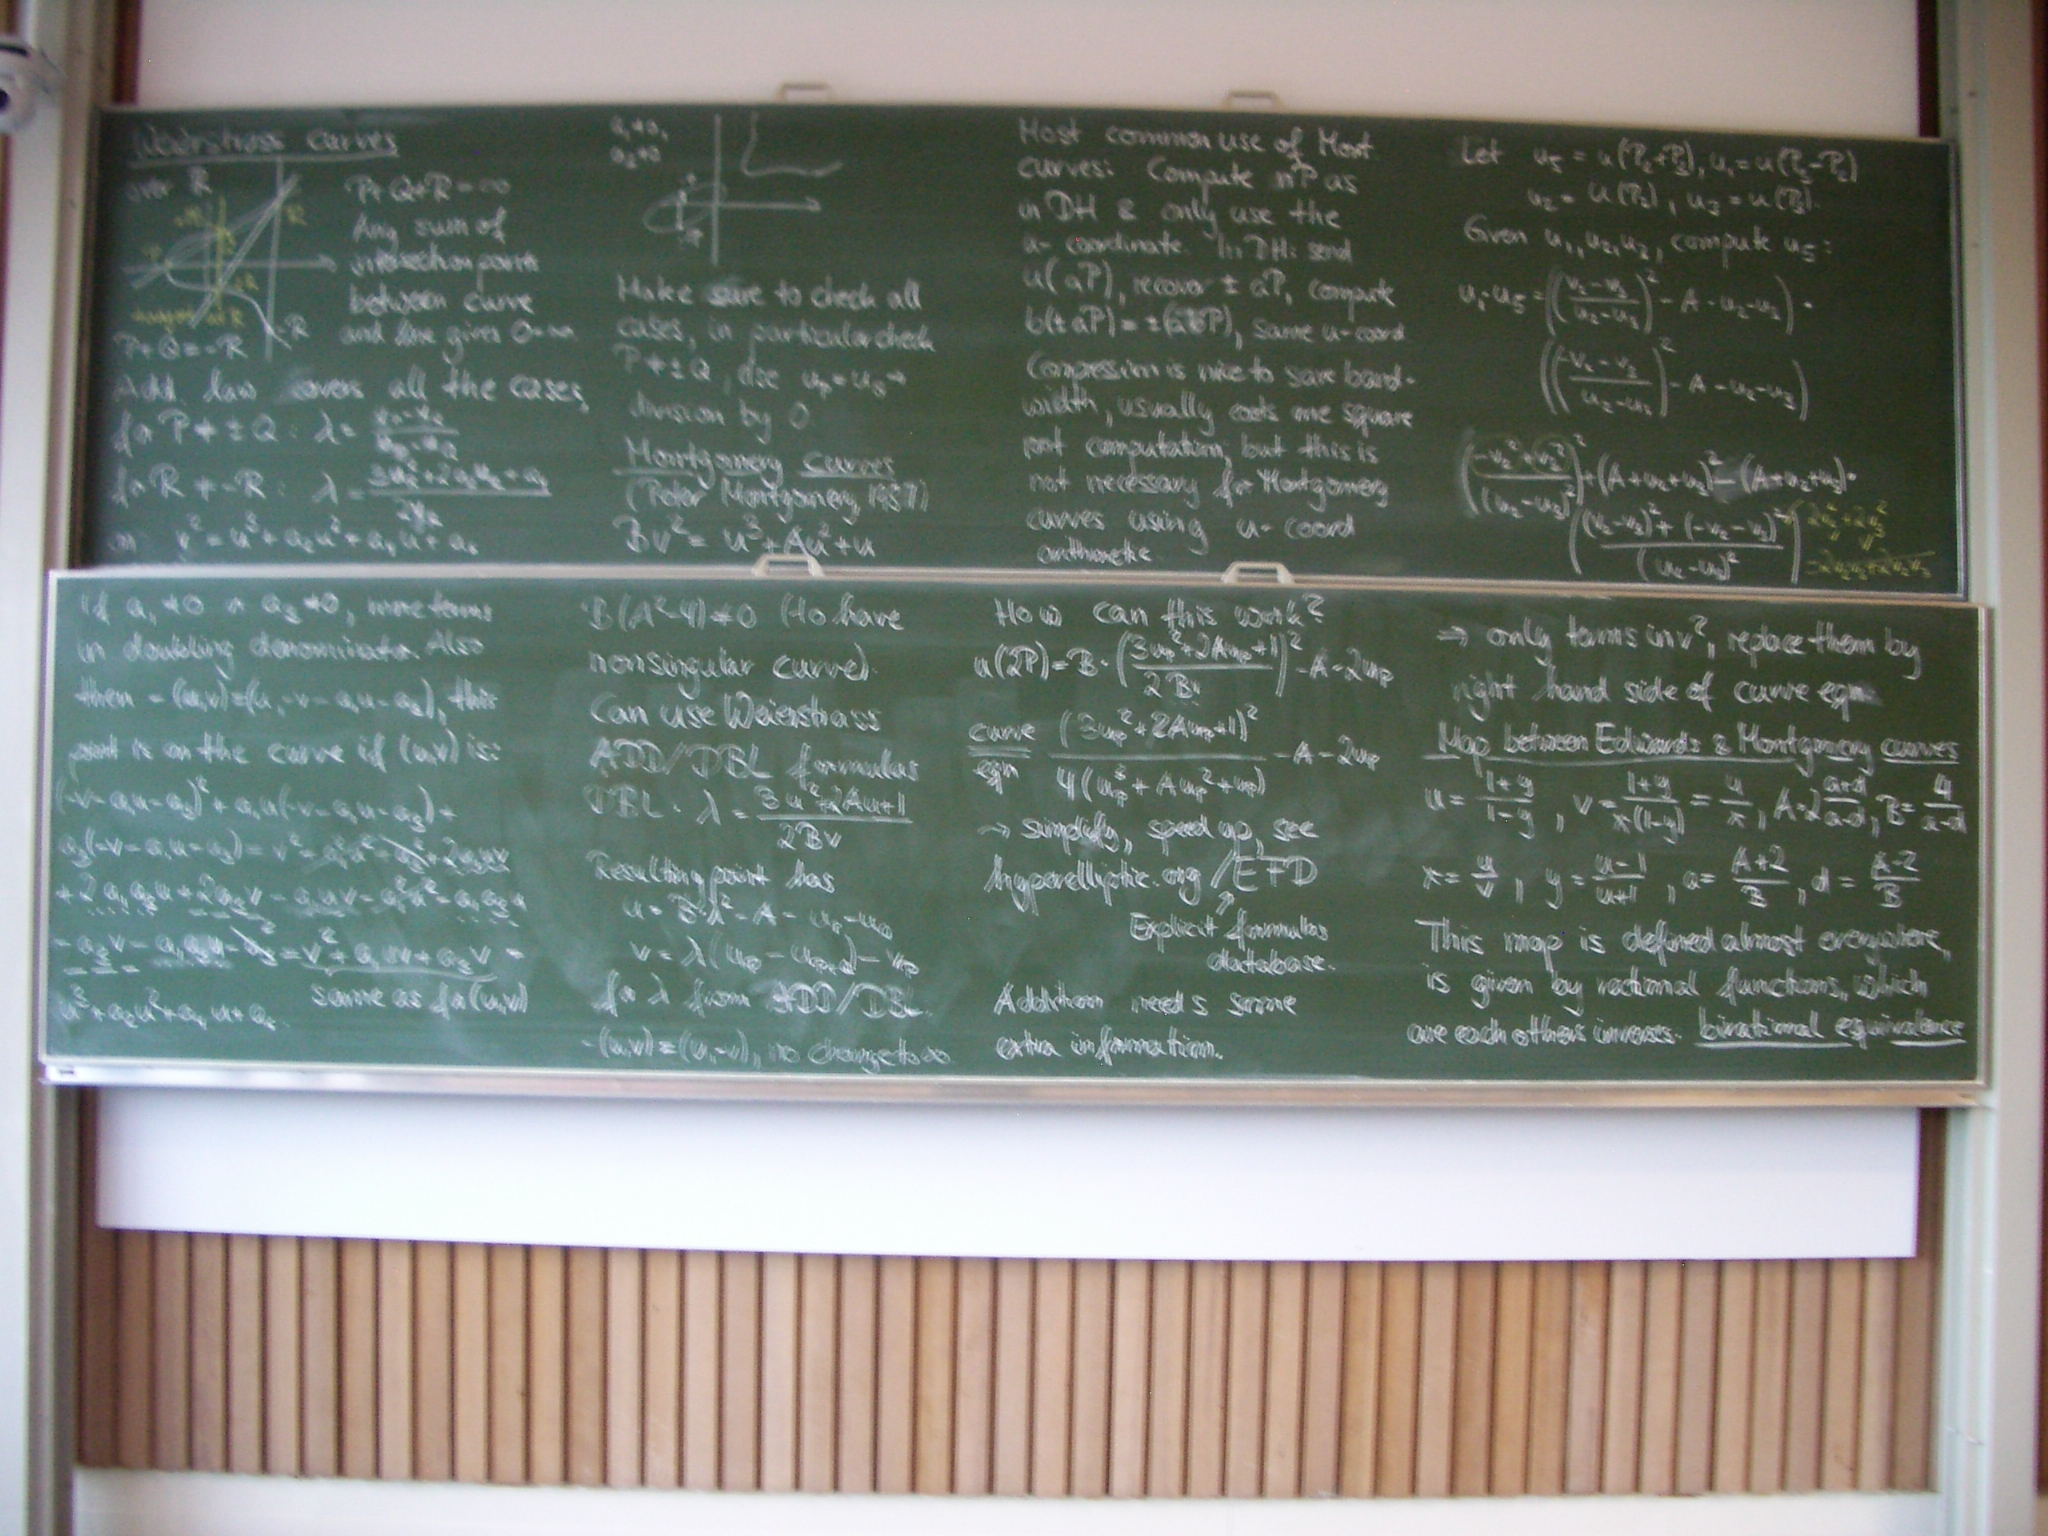 Weierstrass curves
over R
P+Q+R=∞
Any sum of
intersection points
between curve
and line gives 0=∞
R
-R
P+Q=-R
Add. law covers all the cases,
for P≠±Q: λ=
for R≠-R: λ=
on v²=u³+a₂u²+a₄u+a₆
a₁≠0,
a₃≠0
Make sure to check all
cases, in particular check
P≠±Q, else
division by 0
Montgomery curves
(Peter Montgomery 1987)
Bv²= u³+Au²+u
Most common use of Mont.
curves: Compute nP as
in DH & only use the
u-coordinate. In DH: send
u(aP), recover ±aP, compute
b(±aP)=±(abP), same u-coord
Compression is nice to save band-
width, usually costs one square
root computation, but this is
not necessary for Montgomery
curves using u-coord
arithmetic
Let u₅ = u(P₂+P₃), u₁=u(P₃-P₂)
u₂= u(P₂), u₃= u(P₃).
Given u₁,u₂,u₃, compute u₅:
u₁·u₅=((v₂-v₃)/(u₂-u₃))²-A-u₂-u₃)·
((-v₂-v₃)/(u₂-u₃))²-A-u₂-u₃)
((-v₂²+v₃²)/(u₂-u₃)²)²+(A+u₂+u₃)²-(A+u₂+u₃)·
((v₂-v₃)²+(-v₂-v₃)²)/(u₂-u₃)²) 2v₂²+2v₃²
-2v₂v₃+2v₂v₃
If a₁≠0 or a₃≠0, more terms
in doubling denominator. Also
then -(u,v)=(u,-v-a₁u-a₃), this
point is on the curve if (u,v) is:
(-v-a₁u-a₃)²+a₁u(-v-a₁u-a₃)+
a₃(-v-a₁u-a₃)=v²+a₁²u²+a₃²+2a₁uv
+2a₁a₃u+2a₃v-a₁uv-a₁²u²-a₁a₃u
-a₃v-a₁a₃u-a₃²=v²+a₁uv+a₃v =
same as for (u,v)
u³+a₂u²+a₄u+a₆.
B(A²-4)≠0 (to have
nonsingular curve).
Can use Weierstrass
ADD/DBL formulas
DBL: λ=(3u²+2Au+1)/(2Bv)
Resulting point has
u=B·λ²-A-
v=λ(
for λ from ADD/DBL.
-(u,v)=(u,-v), no change to ∞
How can this work?
u(2P)=B·((3u_P²+2Au_P+1)/(2Bv))²-A-2u_P
curve eqn = (3u_P²+2Au_P+1)²/(4(u_P³+Au_P²+u_P))-A-2u_P
→ simplify, speed up, see
hyperelliptic.org/EFD
↗
Explicit formulas
database.
Addition needs some
extra information.
⇒ only terms in v², replace them by
right hand side of curve eqn
Map between Edwards & Montgomery curves
u=(1+y)/(1-y), v=(1+y)/(x(1-y))=u/x, A=2(a+d)/(a-d), B=4/(a-d)
x=u/v, y=(u-1)/(u+1), a=(A+2)/B, d=(A-2)/B
This map is defined almost everywhere,
is given by rational functions, which
are each others inverses. birational equivalence